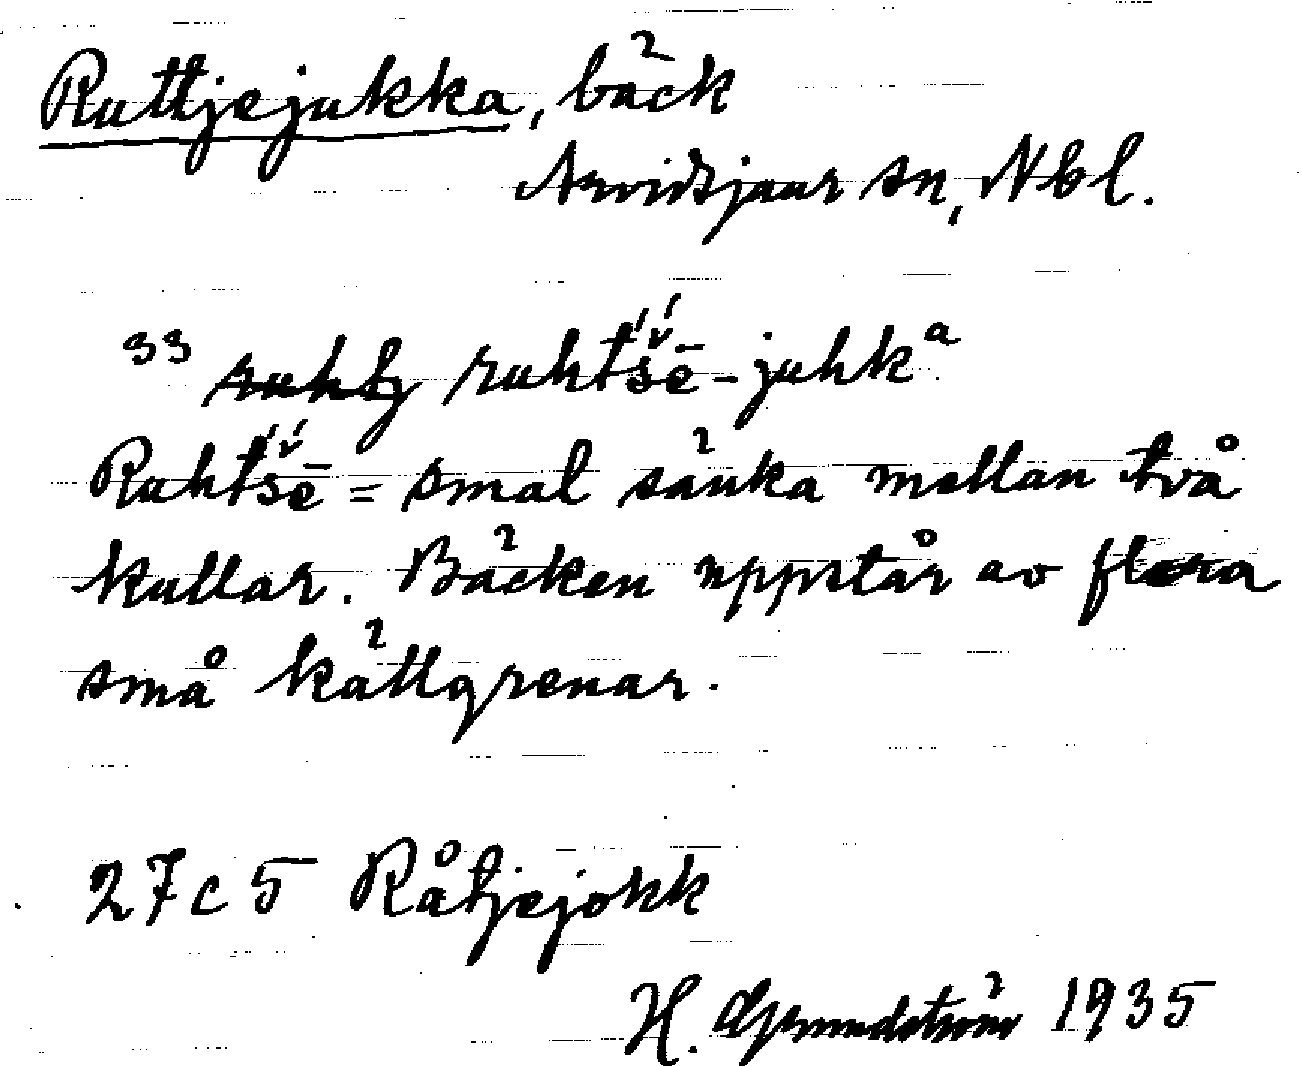 Ruttjejukka, bäck
Arvidsjaur sn, Nbl.
33 ruhtšē-juhkᵃ
Ruhtšē = smal sänka mellan två
kullar. Bäcken uppstår av flera
små källgrenar.
27c5 Råtjejokk
H. Grundström 1935